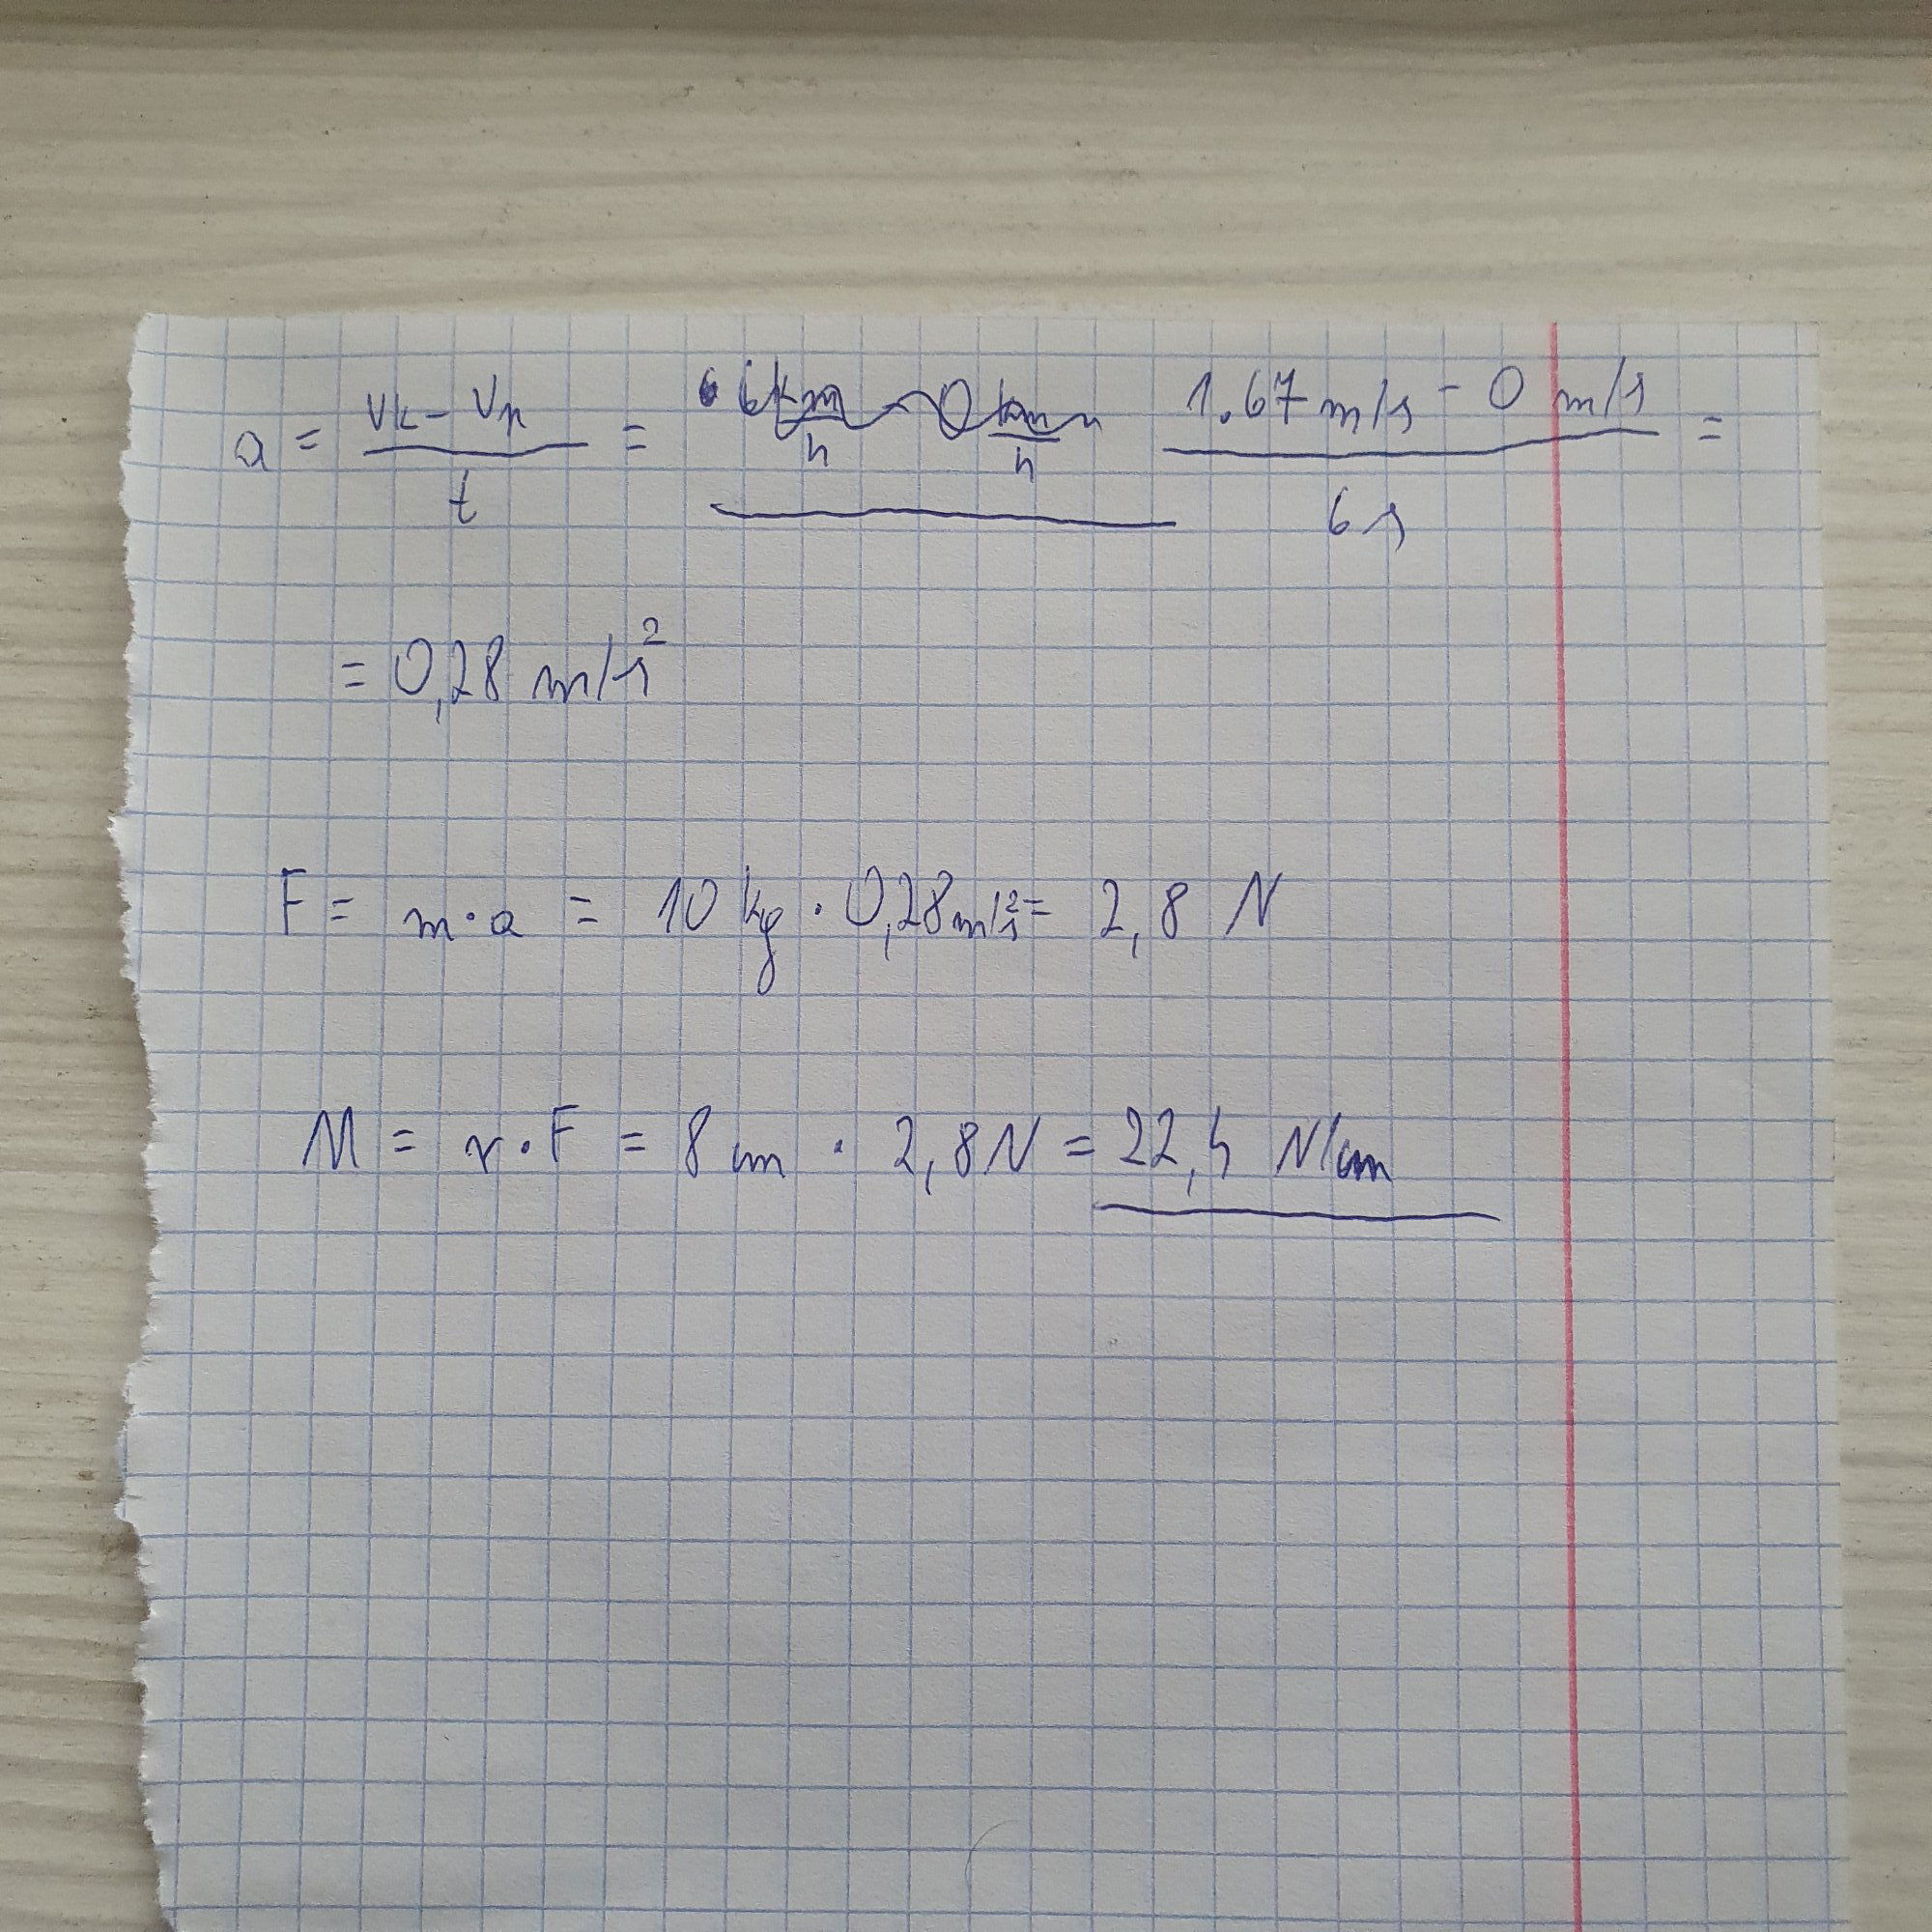 a = (vk - vp)/t = 6 km/h - 0 km/h (1.67 m/s - 0 m/s)/6 s =
= 0,28 m/s²
F = m · a = 10 kg · 0,28 m/s² = 2,8 N
M = r · F = 8 cm · 2,8 N = 22,4 N/cm